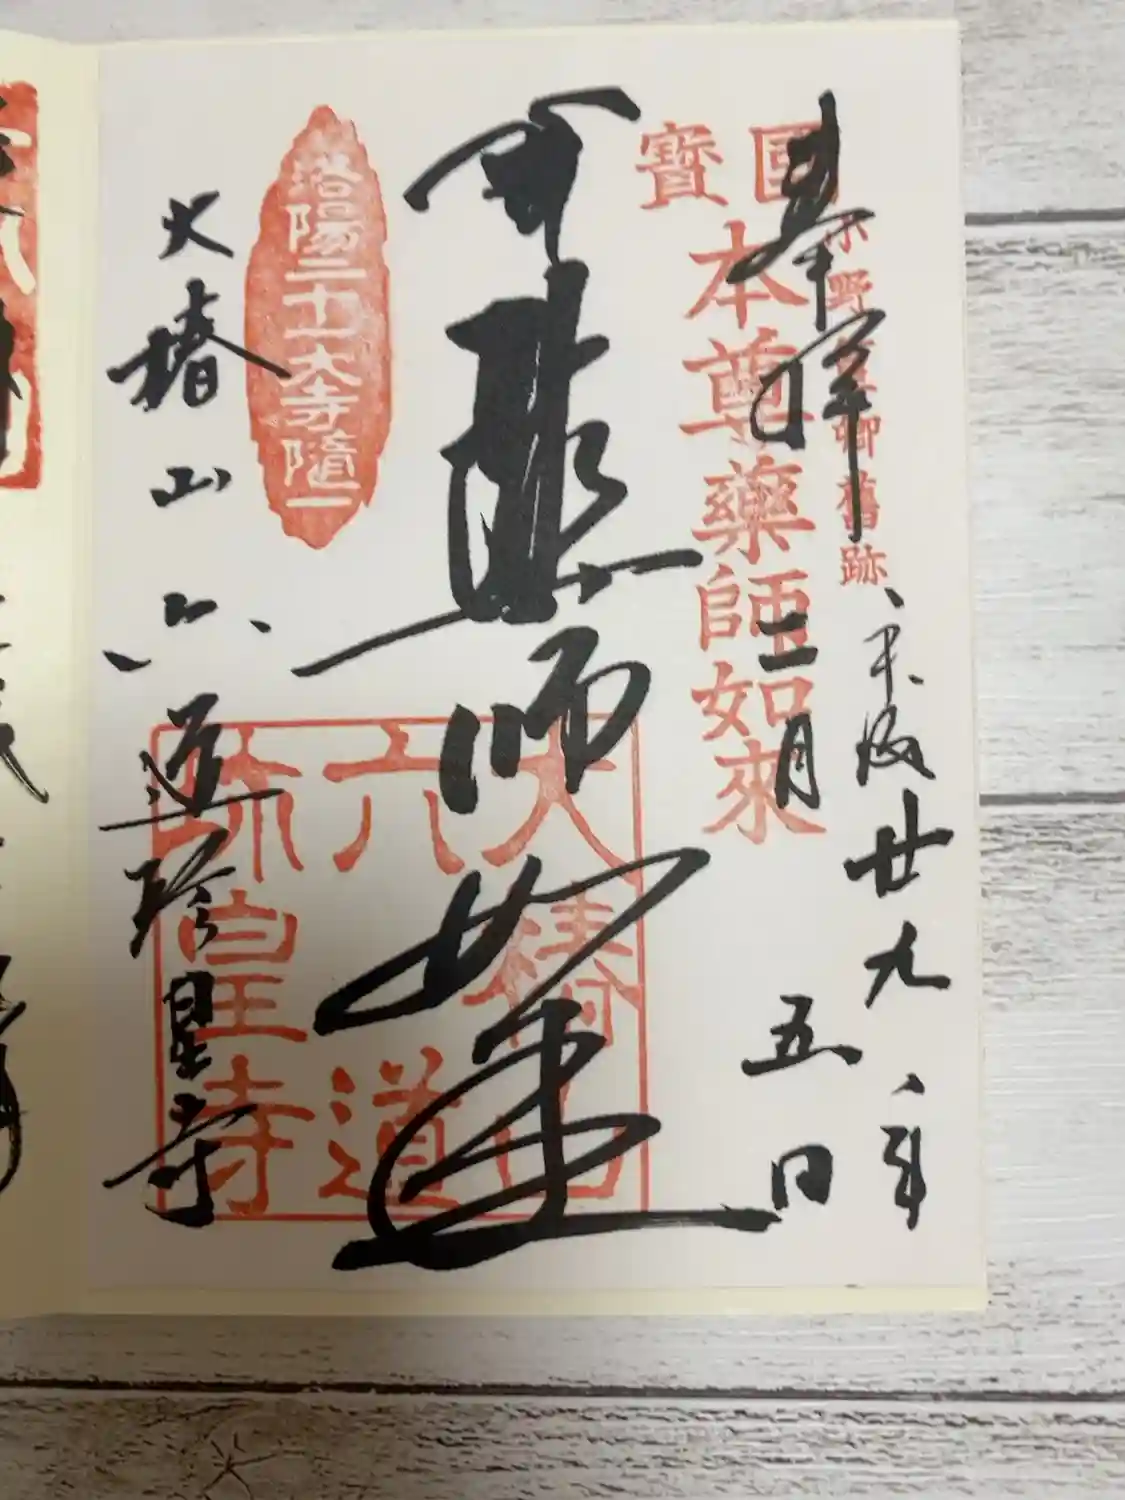 奉拝
平成廿九年
三月
五日
國寶
本尊藥師如來
小野篁卿舊跡
薬師如来
洛陽二十一大寺随一
大椿山
六道
珍皇寺
大椿山六道珍皇寺